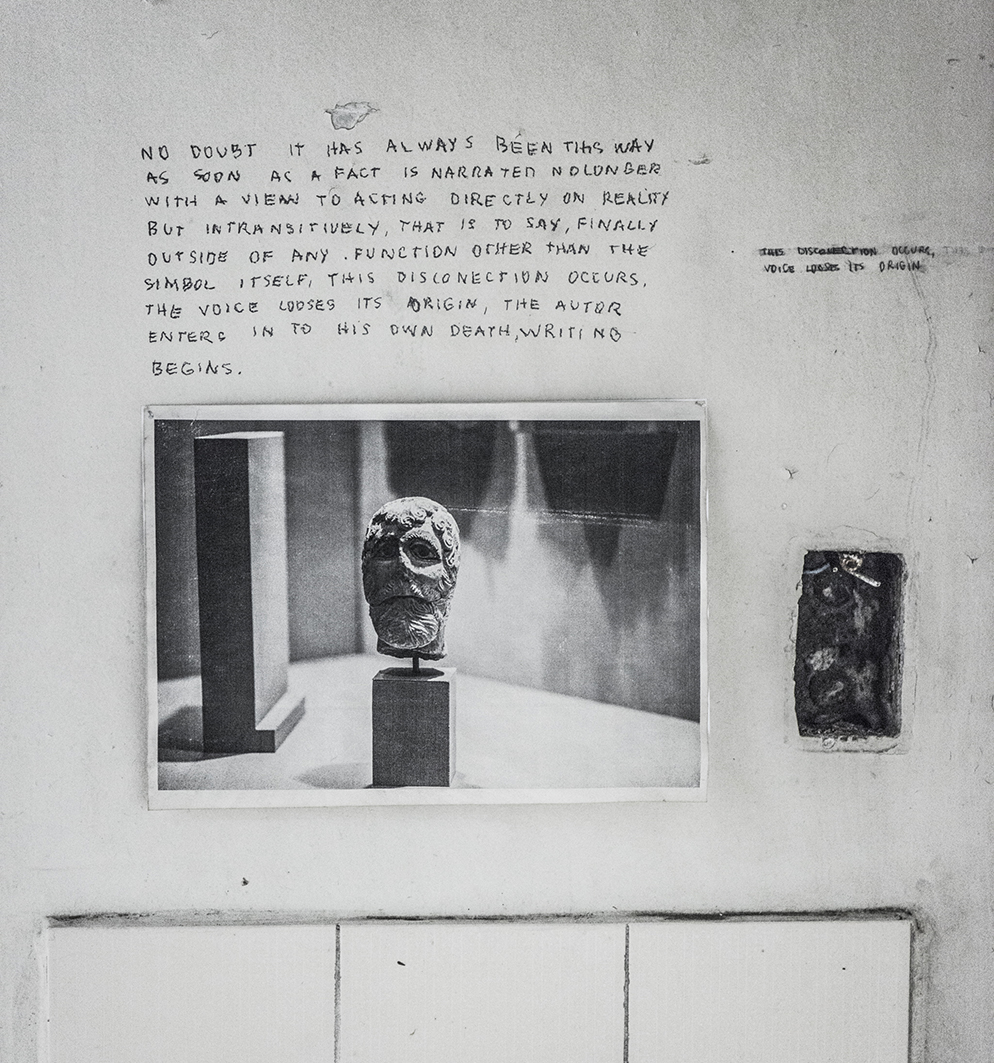 NO DOUBT IT HAS ALWAYS BEEN THIS WAY
AS SOON AS A FACT IS NARRATED NOLONGER
WITH A VIEW TO ACTING DIRECTLY ON REALITY
BUT INTRANSITIVELY, THAT IS TO SAY, FINALLY
OUTSIDE OF ANY .FUNCTION OTHER THAN THE
SIMBOL ITSELF, THIS DISCONECTION OCCURS,
THE VOICE LOOSES ITS ORIGIN, THE AUTOR
ENTERS IN TO HIS OWN DEATH, WRITING
BEGINS.
THIS DISCONECTION OCCURS,
VOICE LOOSES ITS ORIGIN